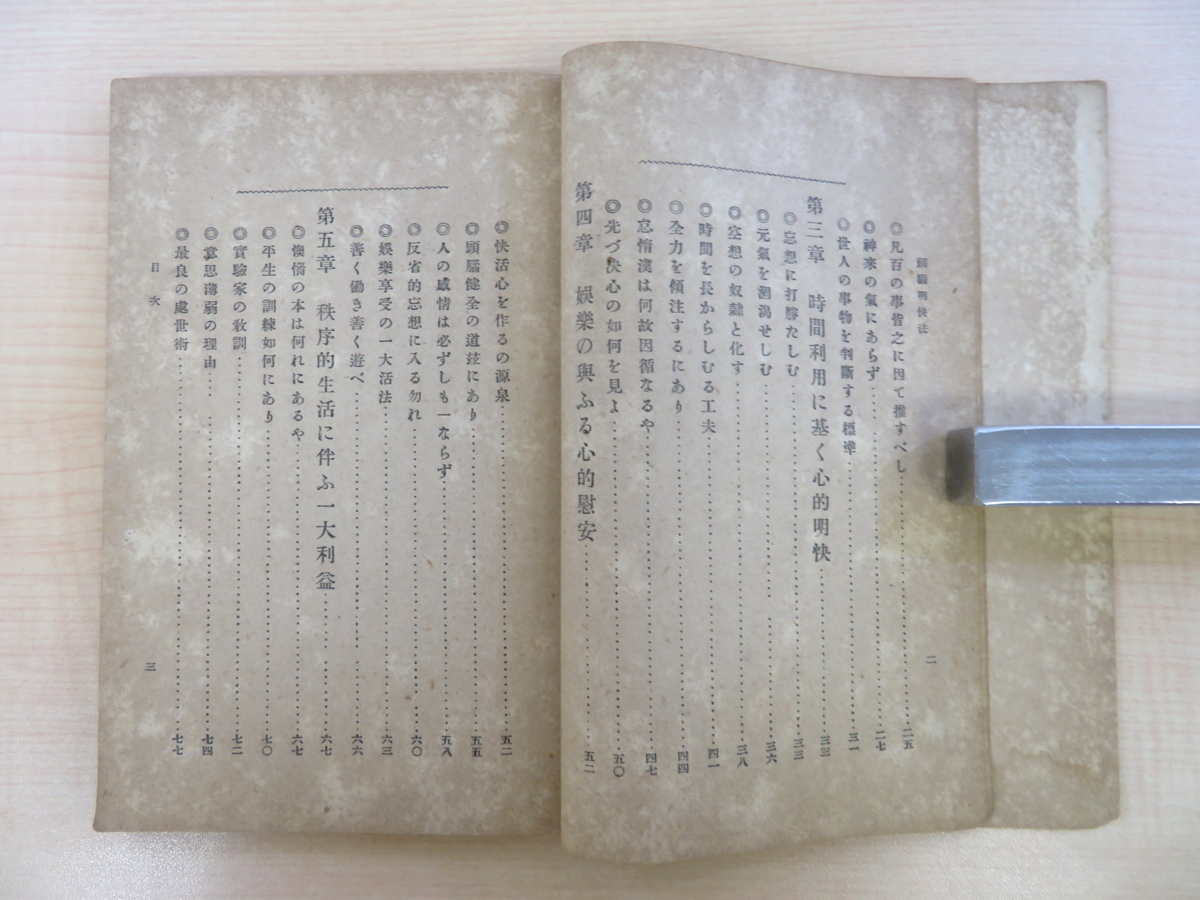 頭腦明快法
◎凡百の事皆之に因て推すべし……二五
◎神來の氣にあらず……二七
◎世人の事物を判斷する標準……三一
第三章 時間利用に基く心的明快……三三
◎忘想に打勝たしむ……三三
◎元氣を涸渇せしむ……三六
◎空想の奴隷と化す……三八
◎時間を長からしむる工夫……四一
◎全力を傾注するにあり……四四
◎怠惰漢は何故因循なるや……四七
◎先づ決心の如何を見よ……五〇
第四章 娯樂の與ふる心的慰安……五二
二
◎快活心を作るの源泉……五二
◎頭腦健全の道玆にあり……五五
◎人の感情は必ずしも一ならず……五八
◎反省的忘想に入る勿れ……六〇
◎娯樂享受の一大活法……六三
◎善く働き善く遊べ……六六
第五章 秩序的生活に伴ふ一大利益……六七
◎懊惱の本は何れにあるや……六七
◎平生の訓練如何にあり……七〇
◎實驗家の敎訓……七二
◎意思薄弱の理由……七四
◎最良の處世術……七七
目次
三